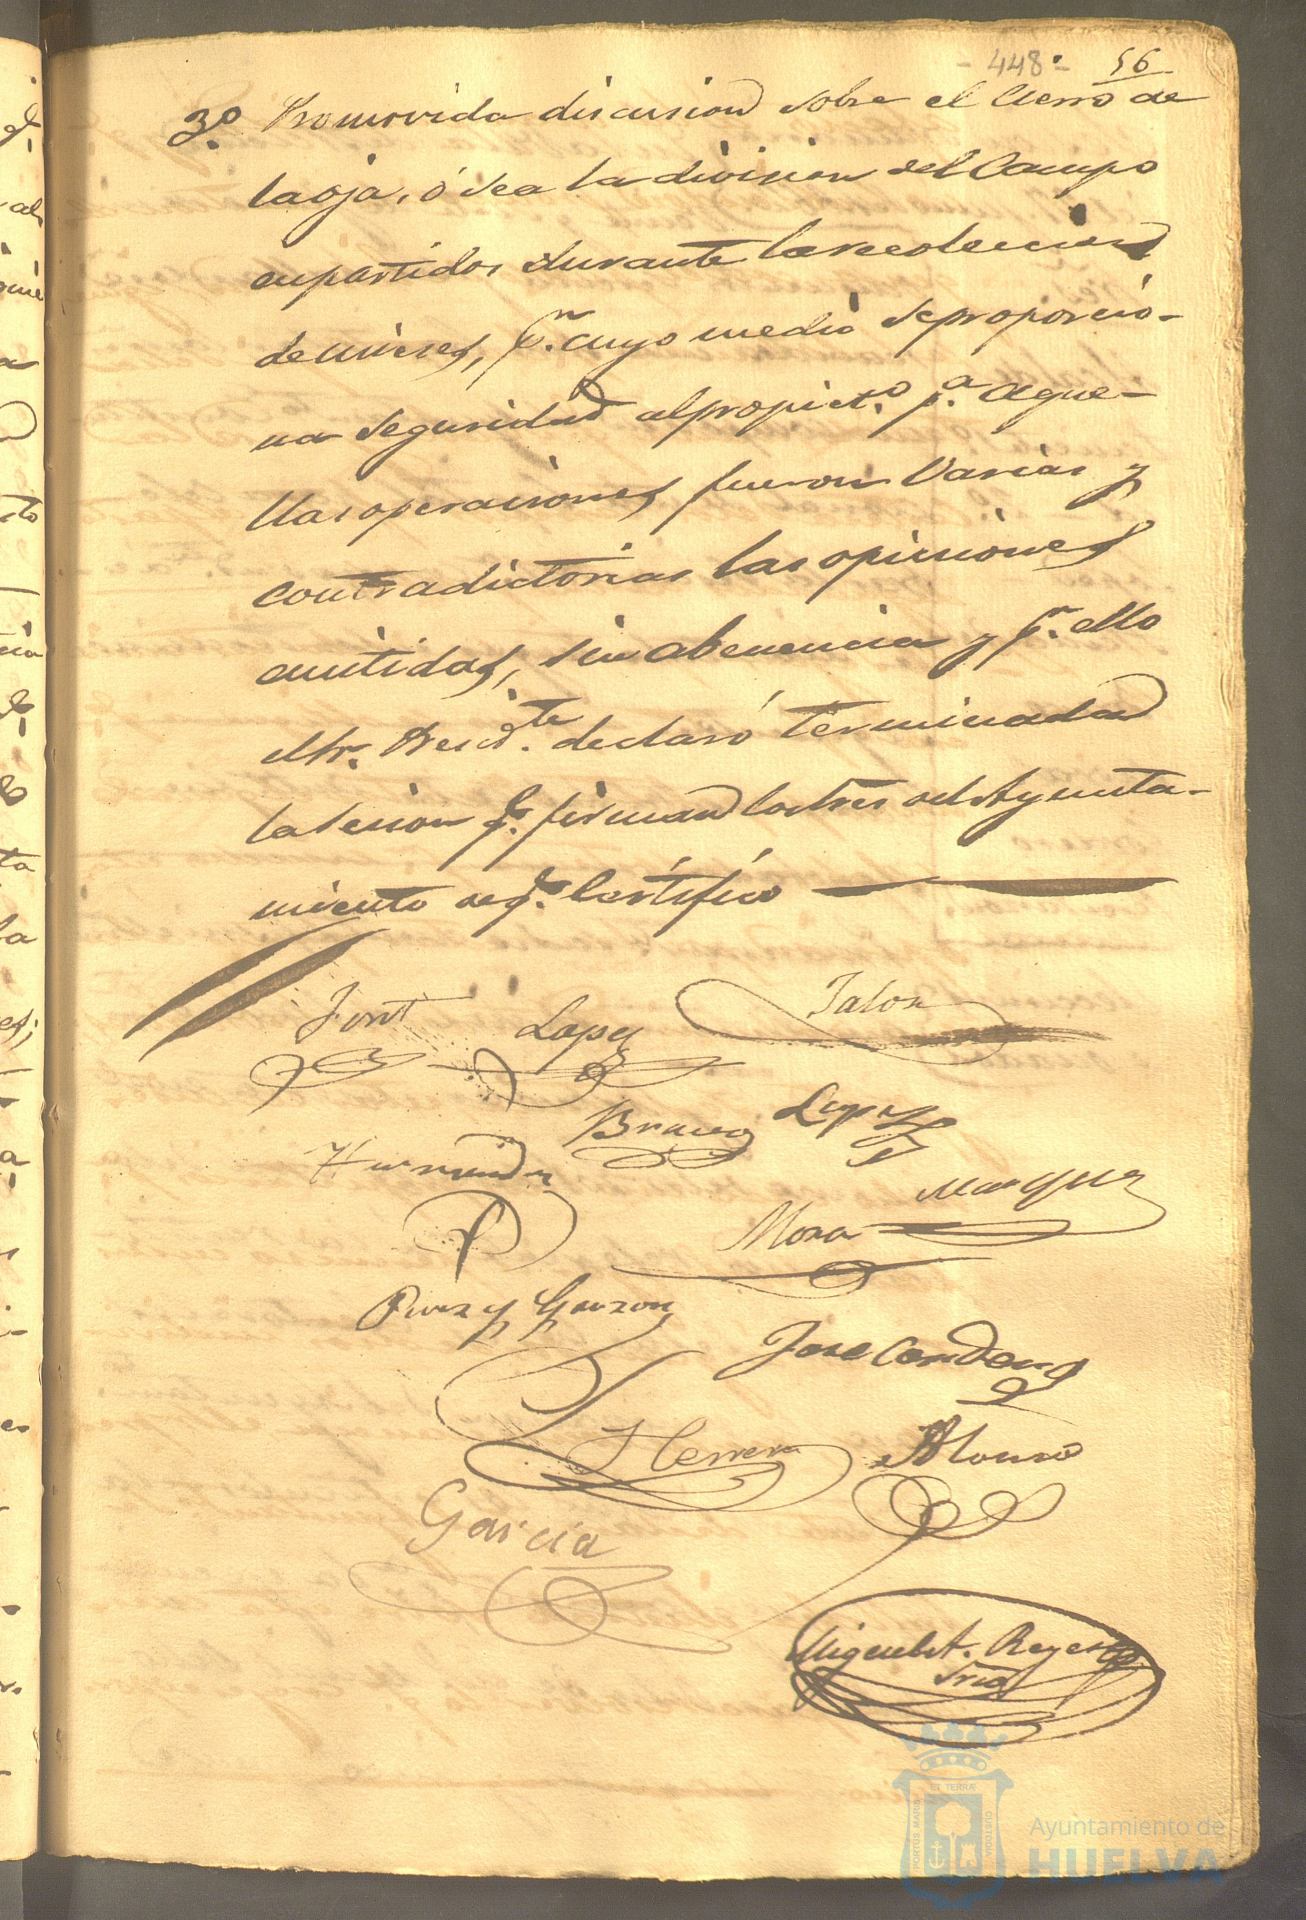 - 448 - 56
3º Promovida discusion sobre el Cierro de
la oja, ó sea la division del Campo
en partidos durante la recoleccion
de mieses, pr. cuyo medio se proporcio-
na seguridad al propietº. pª. aque-
llas operaciones, fueron varias y
contradictorias las opiniones
emitidas, sin abenencia y pr. ello
el Sr. Presidte. declaró terminada
la sesion q. firman los Sres del Ayunta-
miento de q. Certifico
Font Lopez Jalon
Hernandez Bravo Lopez
Mora Marquez
Perez y Garzon
Jose Cordero
Herrera Alonso
Garcia
Miguel A. Reyes
Srio
PORTUS MARIS ET TERRÆ CUSTODIA
Ayuntamiento de
HUELVA